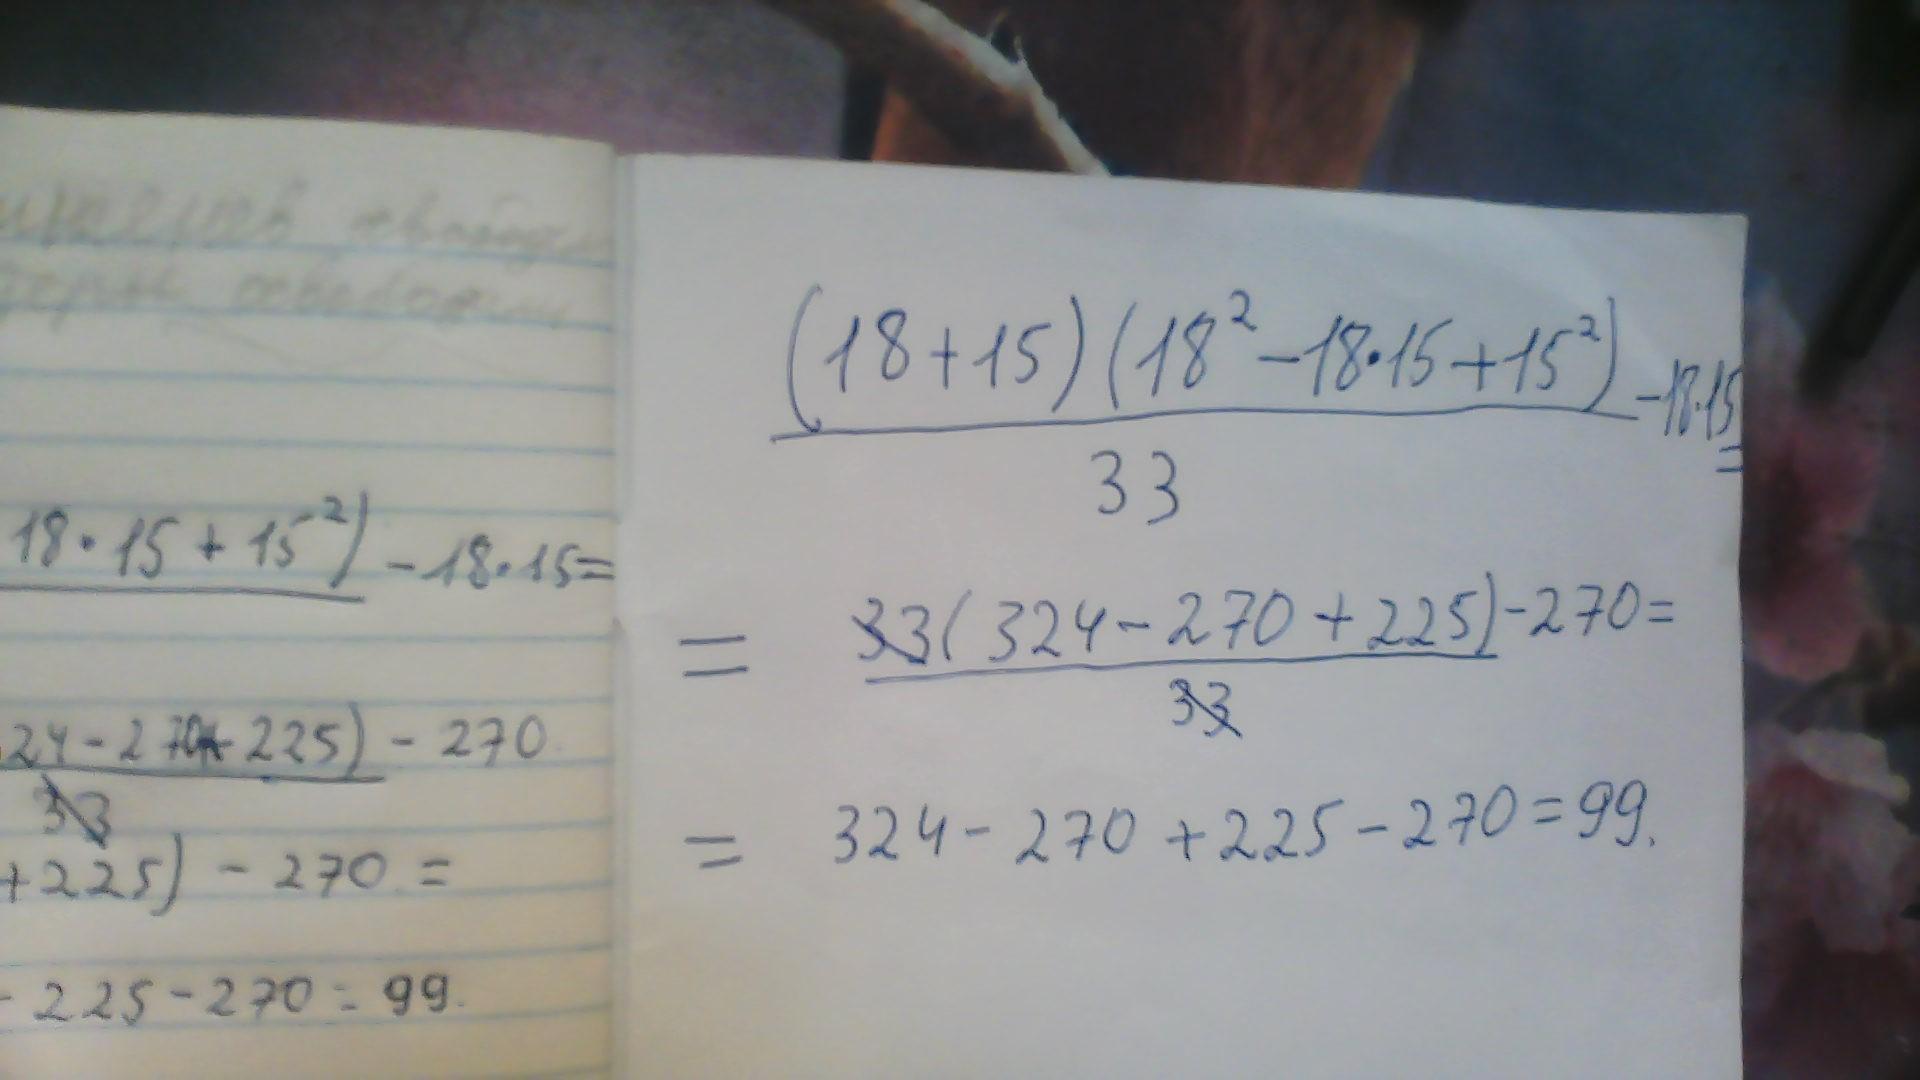 18·15+15²) -18·15=
24-270+225) - 270
33
+225) - 270 =
- 225-270 = 99.
(18+15)(18²-18·15+15²) -18·15
33 =
= 33(324-270+225)-270=
33
= 324-270+225-270=99.